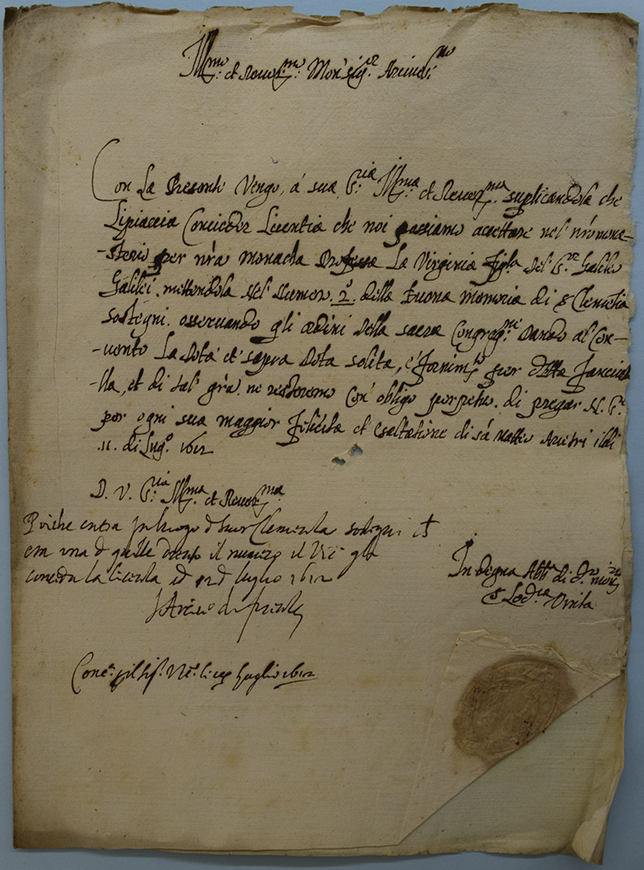 Ill.mo et Rever.mo Mons.re Arcivesc.vo
Con la Presente Vengo, á sua S.ria Ill.ma et Rever.ma suplicandola che
li piaccia Concieder Licentia che noi possiamo accettare nel n'ro mona-
-sterio per n'ra monacha Professa La Virginia figla del S.r Galileo
Galilei. mettendola nel numor. 2.º della buona memoria di S Clemetia
sostegni. osservando gli ordini della sacra Congreg.ni Dando al Con-
-vento La Dota et sopra Dota solita, per detta fanciul
-la, et di tal gr'a ne resteremo con obligo perpetuo di pregar N. S.re
per ogni sua maggior felicita et esaltatione di sã matteo Arcitri il di
.11. di lug.º 1612
D. V. S.ria Ill.ma et Rever.ma
Poiche entra in luogo d Suor Clementia sostegni
era una d quelle dentro il numero il Vic.
conceda la licentia 12 d luglio 1612
Indegna Abb.a di
S Lod.ca Vinta
luglio 1612